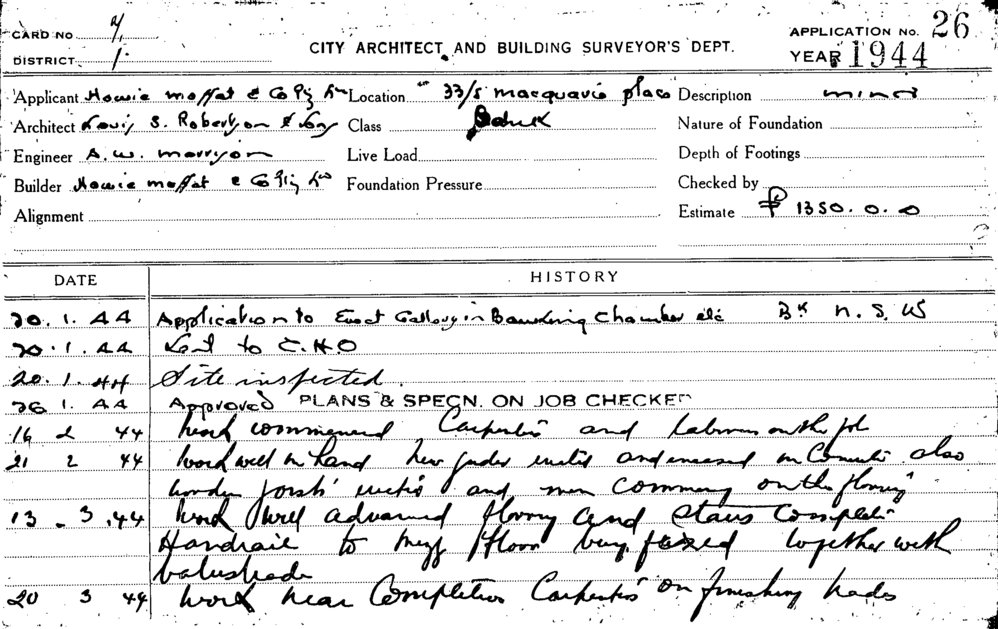 CARD NO 2/1
APPLICATION NO. 26
CITY ARCHITECT AND BUILDING SURVEYOR'S DEPT.
DISTRICT 1.
YEAR 1944
Applicant Howie moffat & Co Pty Location 33/5 macquarie place Description minor
Architect Louis S. Robertson & Son Class Nature of Foundation
Engineer A. W. morrison Live Load Depth of Footings
Builder Howie moffat & Co Pty Foundation Pressure Checked by
Alignment Estimate £ 1350. 0. 0
DATE HISTORY
20. 1. 44 Application to Erect Gallery in Banking Chamber etc Bk N. S. W
20. 1. 44 Sent to C.H.O
20. 1. 44 Site inspected.
26 1. 44 Approved PLANS & SPECN. ON JOB CHECKED
16 2 44 Work commenced Carpenters and labourers on the job
21 2 44 Work well in hand New girder erected and encased in Concrete also
wooden joists erected and men commencing on the flooring
13 - 3 . 44 Work well advanced flooring and stairs completed
Handrail to mezz floor being fixed together with
balustrade
20 3 44 Work near Completion Carpenters on finishing trades